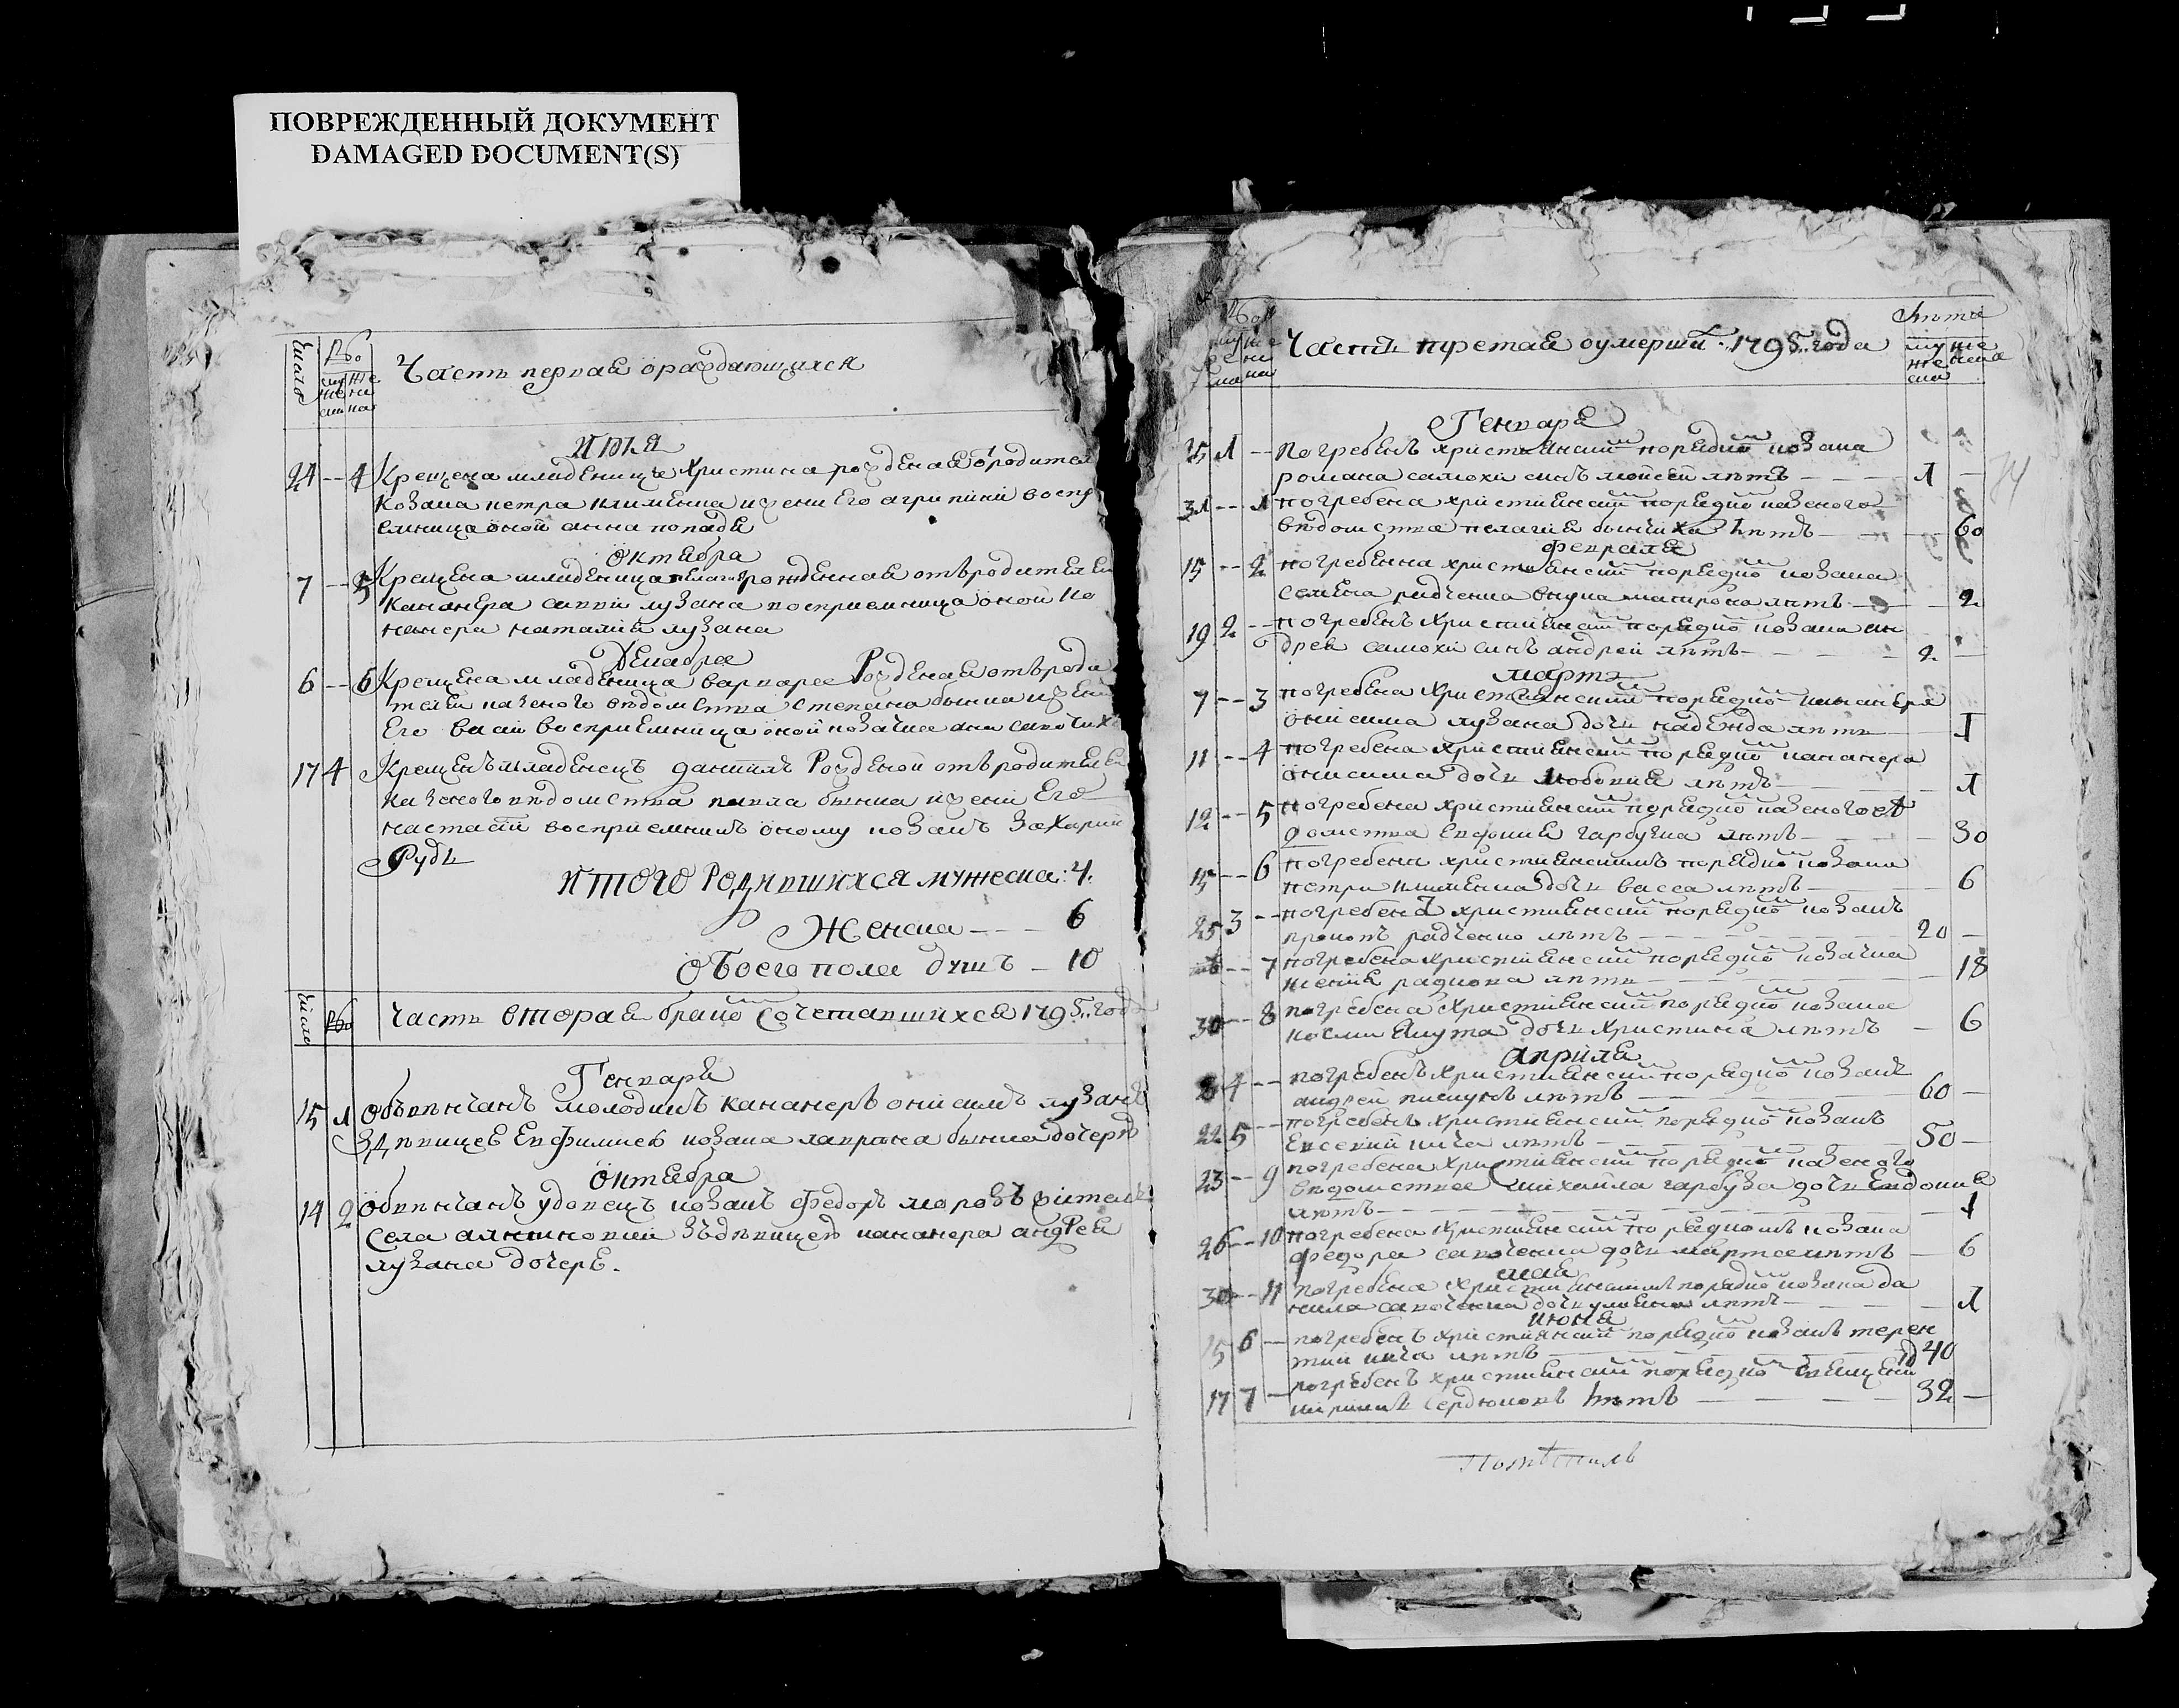 ПОВРЕЖДЕННЫЙ ДОКУМЕНТ
DAMAGED DOCUMENT(S)
Число
Часть первая о раждающихся
Июля
24 -- 4 Крещена младеница Христина рожденая о родител
козака петра клименка и жени его агрипини воспр
емница оной анна попадя
Октября
7 -- 5 Крещена младеница рожденная отъ родителей
канонера лузана восприемница оной ко
наталия лузана
Декабря
6 -- 6 Крещена младеница варвара Рожденая отъ роди
телей казеного ведомства степана бынка и жени
Его восприемница оной козачка
17 4 Крещенъ младенецъ даниилъ Рожденой отъ родителей
казеного ведомства павла бынка и жени Его
настасии восприемникъ оному козакъ Захарий
Рудь
Итого Родившихся мужеска: 4.
Женска --- 6
Обоего пола душъ - 10
Число
Часть вторая о брако Сочетавшихся 1795: год
Генваря
15 1 Обвѣнчанъ молодикъ канонеръ онисимъ лузанъ
Здѣвицею Евфимиею козака лаврина бынка дочерю
Октября
14 2 Обвѣнчанъ удовецъ козакъ Федоръ морозъ жител
Села Здѣвицею канонера андрея
лузана дочерю.
Часть третая о умерши 1795: года
лѣта
Генваря
25 1 -- погребенъ християнски порядко козака
романа самохи синъ мойсей лѣтъ --- 1 -
31 -- 1 погребена християнски порядко казеного
вѣдомства пелагия бынчиха лѣтъ --- 60
Февраля
15 -- 2 погребенна християнски порядко козака
Семена радченка внука матрона лѣтъ --- 2
19 2 -- погребенъ християнски порядко козака ан
дрея самохи синъ андрей лѣтъ --- 2 -
Марта
7 -- 3 погребена християнски порядко канонера
онисима лузана дочь надежда лѣтъ --- 1
11 -- 4 погребена християнски порядко канонера
онисима дочь любовия лѣтъ --- 1
12 -- 5 погребена християнски порядко казеного ве
домства Евфимия гарбузка лѣтъ --- 30
15 -- 6 погребена християнскимъ порядко козака
петра клименка дочь васса лѣтъ --- 6
25 3 -- погребенъ християнски порядко козакъ
прокопъ радченко лѣтъ --- 20 -
-- 7 погребена християнски порядко козачка
ксения радиона лѣтъ --- 18
30 -- 8 погребена християнски порядко козака
космы дочь христина лѣтъ - 6
Априля
4 -- погребенъ християнски порядко козакъ
андрей лѣтъ --- 60 -
22 5 -- погребенъ християнски порядко козакъ
Евсевий кича лѣтъ --- 50 -
23 -- 9 погребена християнски порядко казеного
ведомства михаила гарбуза дочь Евдокия
лѣтъ --- 1
26 -- 10 погребена християнски порядкомъ козака
федора савченка дочь марта лѣтъ - 6
мая
30 -- 11 погребена християнскимъ порядко козака да
нила савченка дочь улияна лѣтъ --- 1
июня
15 6 -- погребенъ християнски порядко козакъ терен
тий кича лѣтъ --- 40
17 7 -- погребенъ християнски порядко священн
кирилъ Сердюковъ лѣтъ --- 32 -